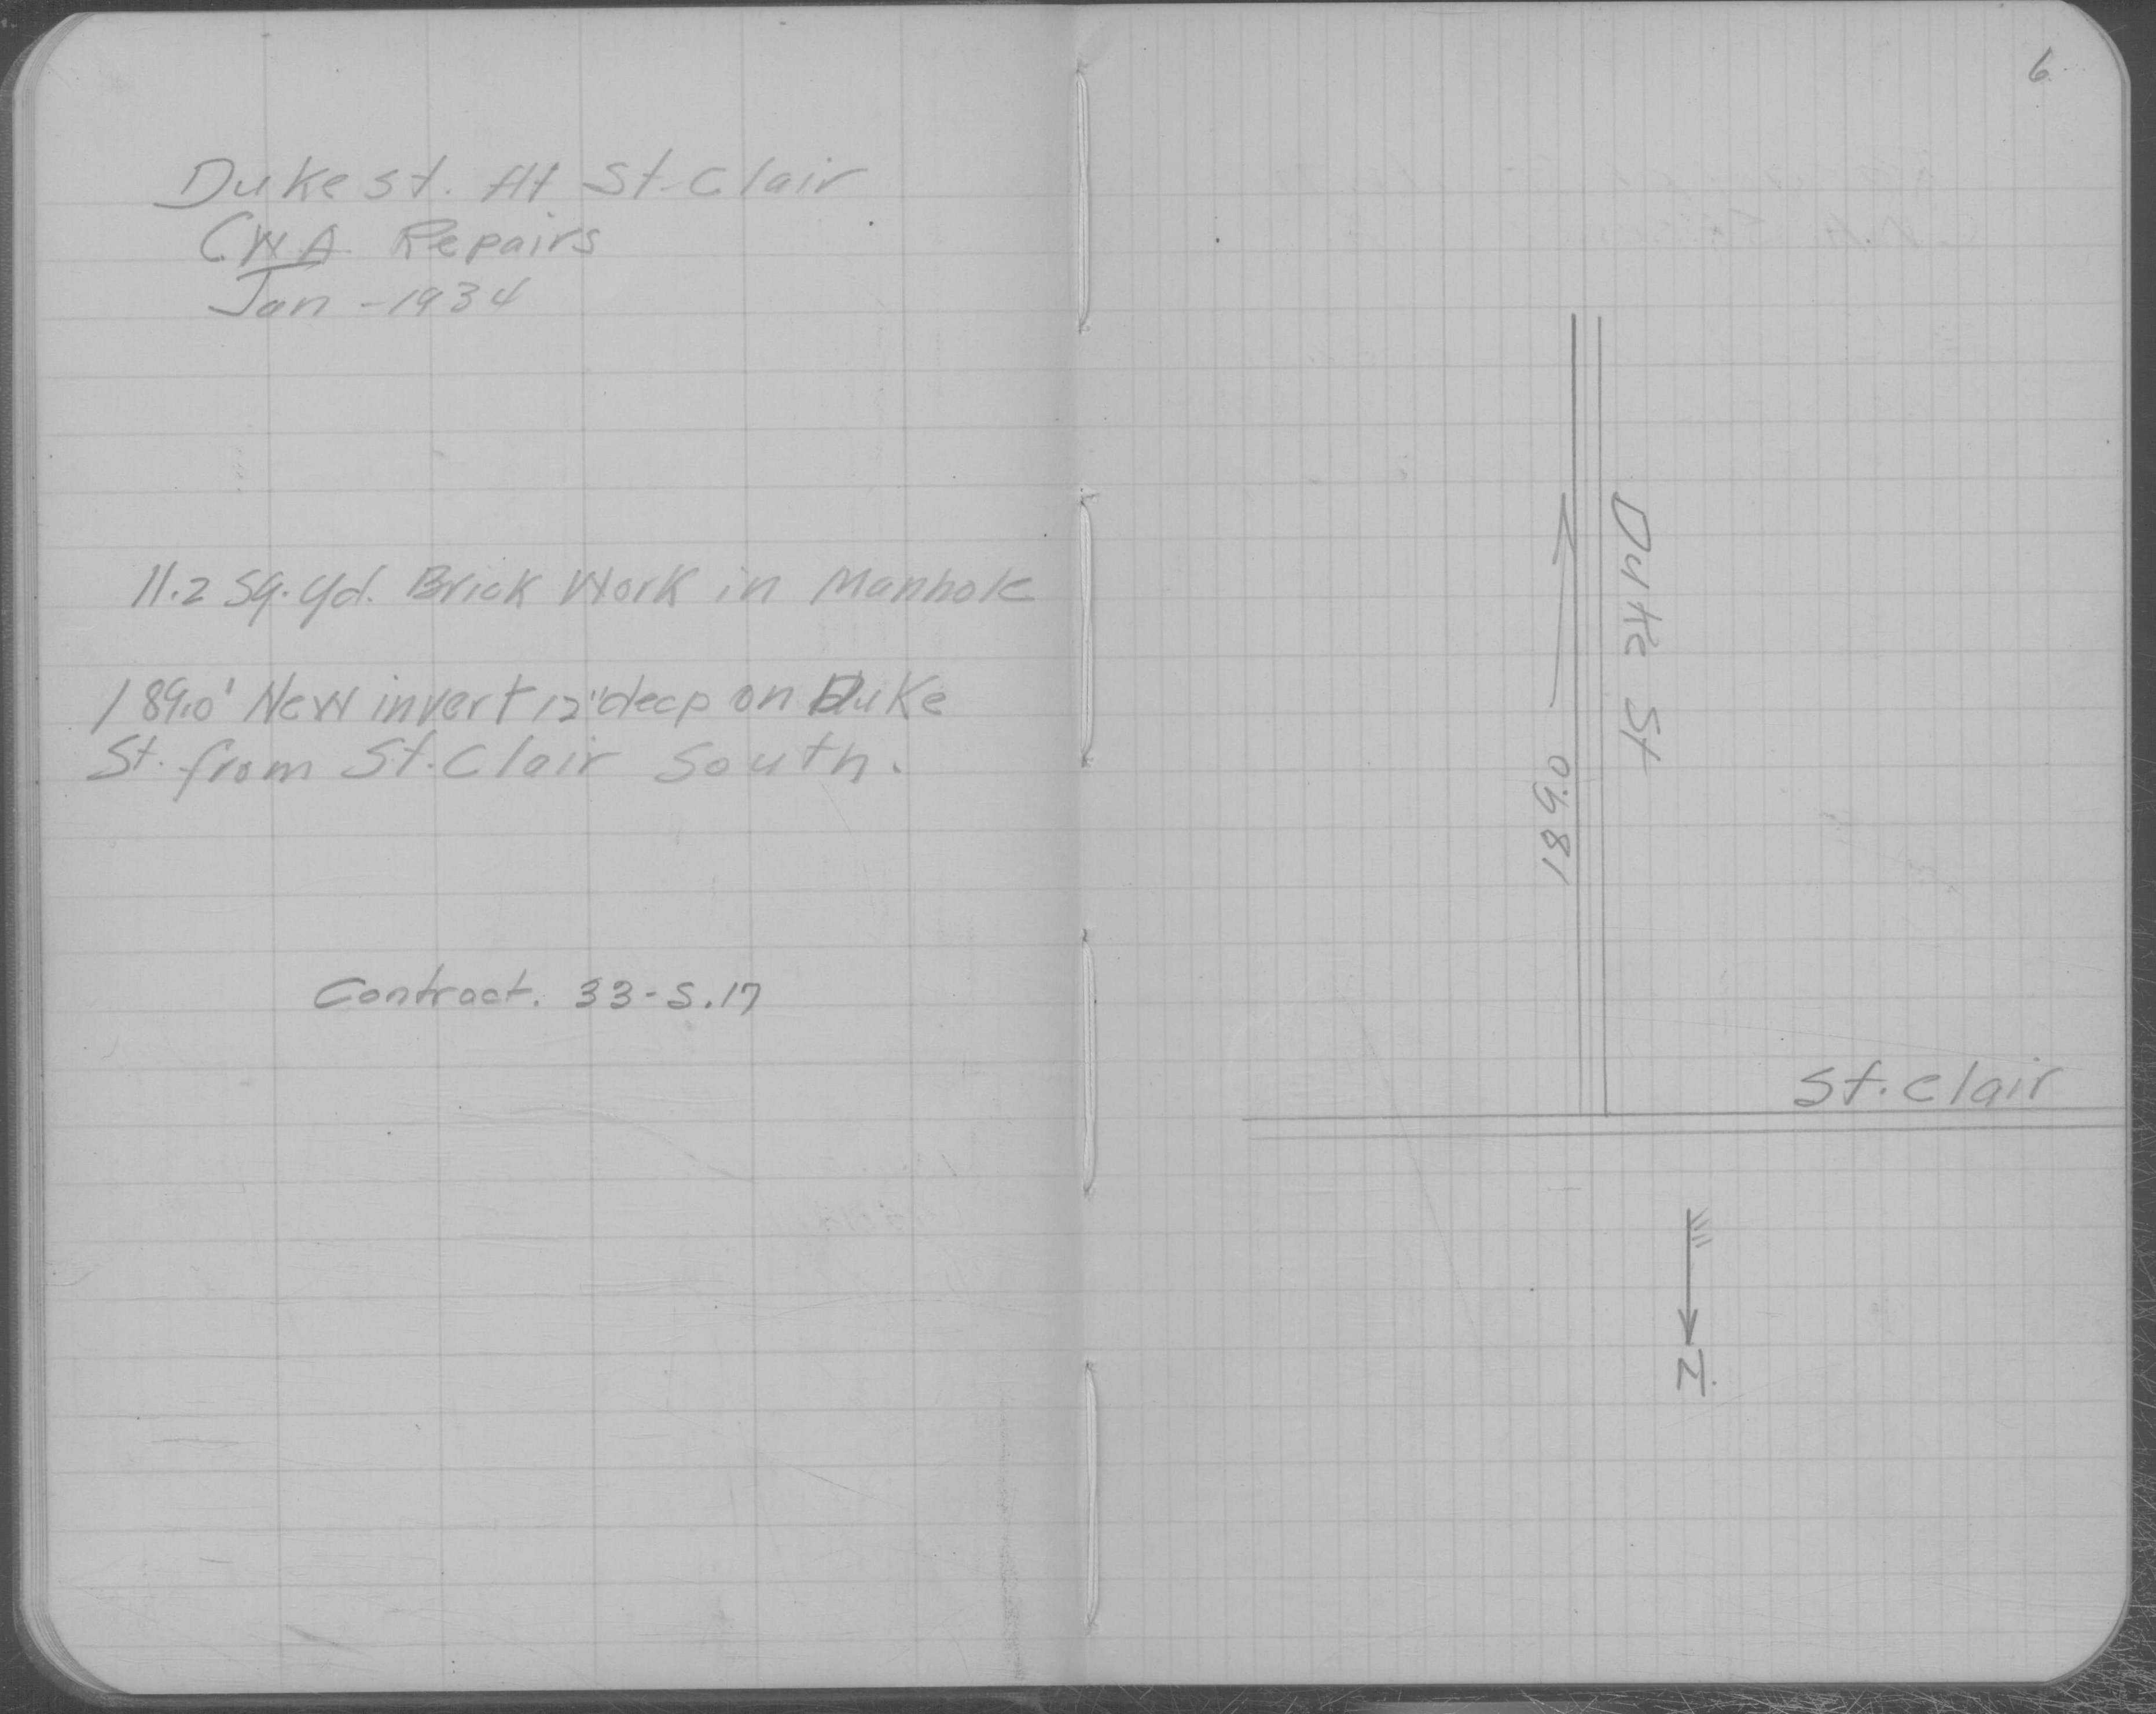 Duke St. At St. Clair
C.W.A. Repairs
Jan - 1934
11.2 Sq. Yd. Brick Work in Manhole
189.0' New invert 12" deep on Duke
St. from St. Clair South.
Contract. 33-S.17
6
Duke St
189.0
St. Clair
N.